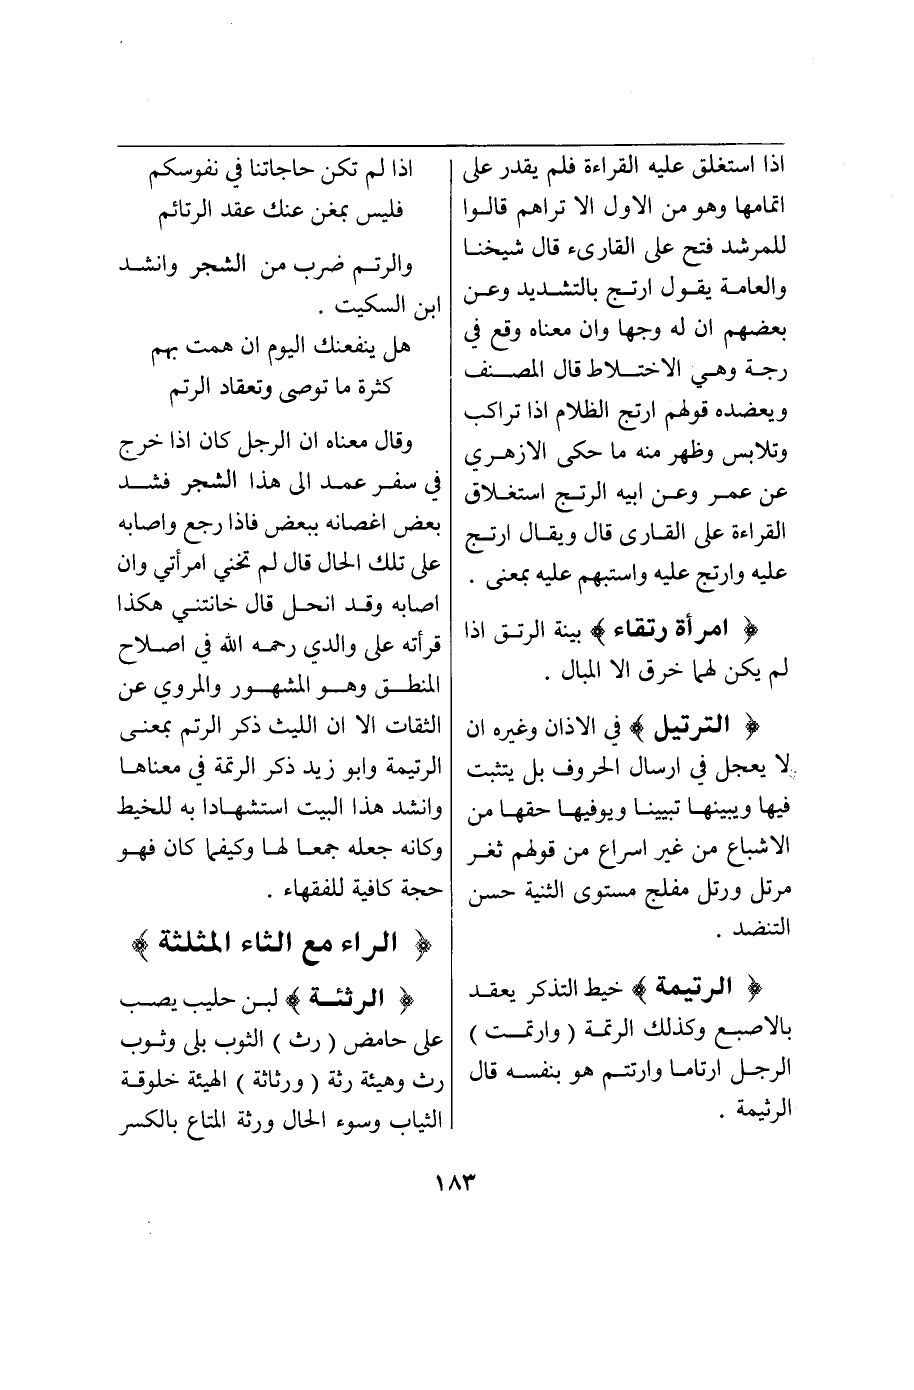 اذا استغلق عليه القراءة فلم يقدر على
اتمامها وهو من الاول الا تراهم قالوا
للمرشد فتح على القارىء قال شيخنا
والعامة يقول ارتج بالتشديد وعن
بعضهم ان له وجها وان معناه وقع في
رجة وهي الاختلاط قال المصنف
ويعضده قولهم ارتج الظلام اذا تراكب
وتلابس وظهر منه ما حكى الازهري
عن عمر وعن ابيه الرتج استغلاق
القراءة على القارى قال ويقال ارتج
عليه وارتج عليه واستبهم عليه بمعنى .
﴿ امرأة رتقاء ﴾ بينة الرتق اذا
لم يكن لها خرق الا المبال .
﴿ الترتيل ﴾ في الاذان وغيره ان
لا يعجل في ارسال الحروف بل يتثبت
فيها ويبينها تبيينا ويوفيها حقها من
الاشباع من غير اسراع من قولهم ثغر
مرتل ورتل مفلج مستوى الثنية حسن
التنضد .
﴿ الرتيمة ﴾ خيط التذكر يعقد
بالاصبع وكذلك الرتمة ( وارتمت )
الرجل ارتاما وارتتم هو بنفسه قال
الرثيمة .
اذا لم تكن حاجاتنا في نفوسكم
فليس بمغن عنك عقد الرتائم
والرتم ضرب من الشجر وانشد
ابن السكيت .
هل ينفعنك اليوم ان همت بهم
كثرة ما توصى وتعقاد الرتم
وقال معناه ان الرجل كان اذا خرج
في سفر عمد الى هذا الشجر فشد
بعض اغصانه ببعض فاذا رجع واصابه
على تلك الحال قال لم تخني امرأتي وان
اصابه وقد انحل قال خانتني هكذا
قرأته على والدي رحمه الله في اصلاح
المنطق وهو المشهور والمروي عن
الثقات الا ان الليث ذكر الرتم بمعنى
الرتيمة وابو زيد ذكر الرتمة في معناها
وانشد هذا البيت استشهادا به للخيط
وكانه جعله جمعا لها وكيفما كان فهو
حجة كافية للفقهاء .
﴿ الراء مع الثاء المثلثة ﴾
﴿ الرثئة ﴾ لبن حليب يصب
على حامض ( رث ) الثوب بلى وثوب
رث وهيئة رثة ( ورثاثة ) الهيئة خلوقة
الثياب وسوء الحال ورثة المتاع بالكسر
١٨٣